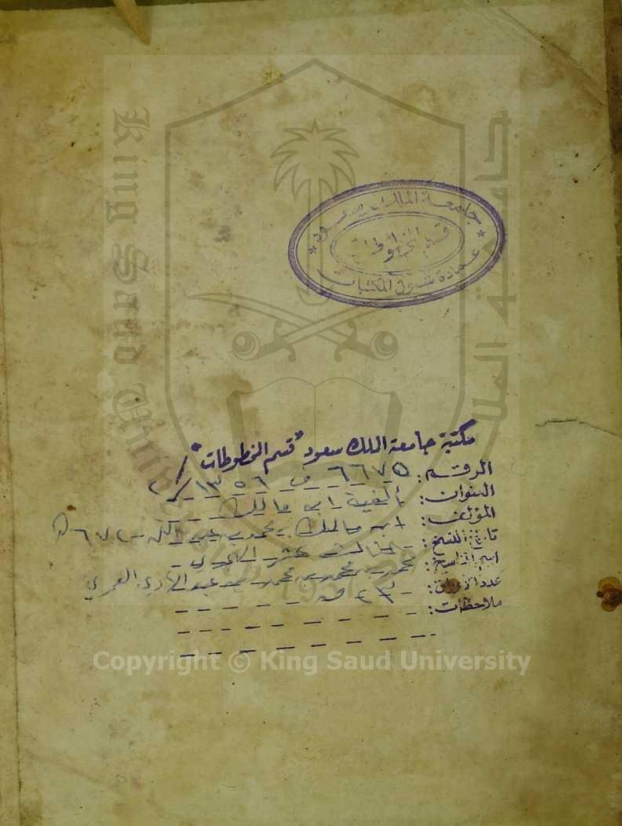 جامعة الملك سعود
قسم المخطوطات
عمادة شئون المكتبات
King Saud University
مكتبة جامعة الملك سعود "قسم المخطوطات"
الرقم: ٦٦٧٥ ف ١٣٥٦/
العنوان: ألفية ابن مالك
المؤلف: ابن مالك، محمد بن عبد الله - ٦٧٢هـ
تاريخ النسخ: الثالث عشر الهجري
اسم الناسخ: محمد بن محمد بن محمد العمري
عدد الأوراق: ق
ملاحظات:
Copyright © King Saud University